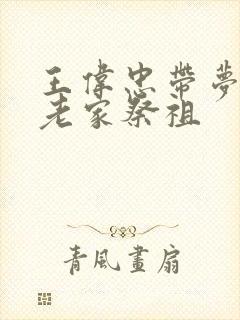 王偉忠帶夢
老家祭祖
青風畫扇